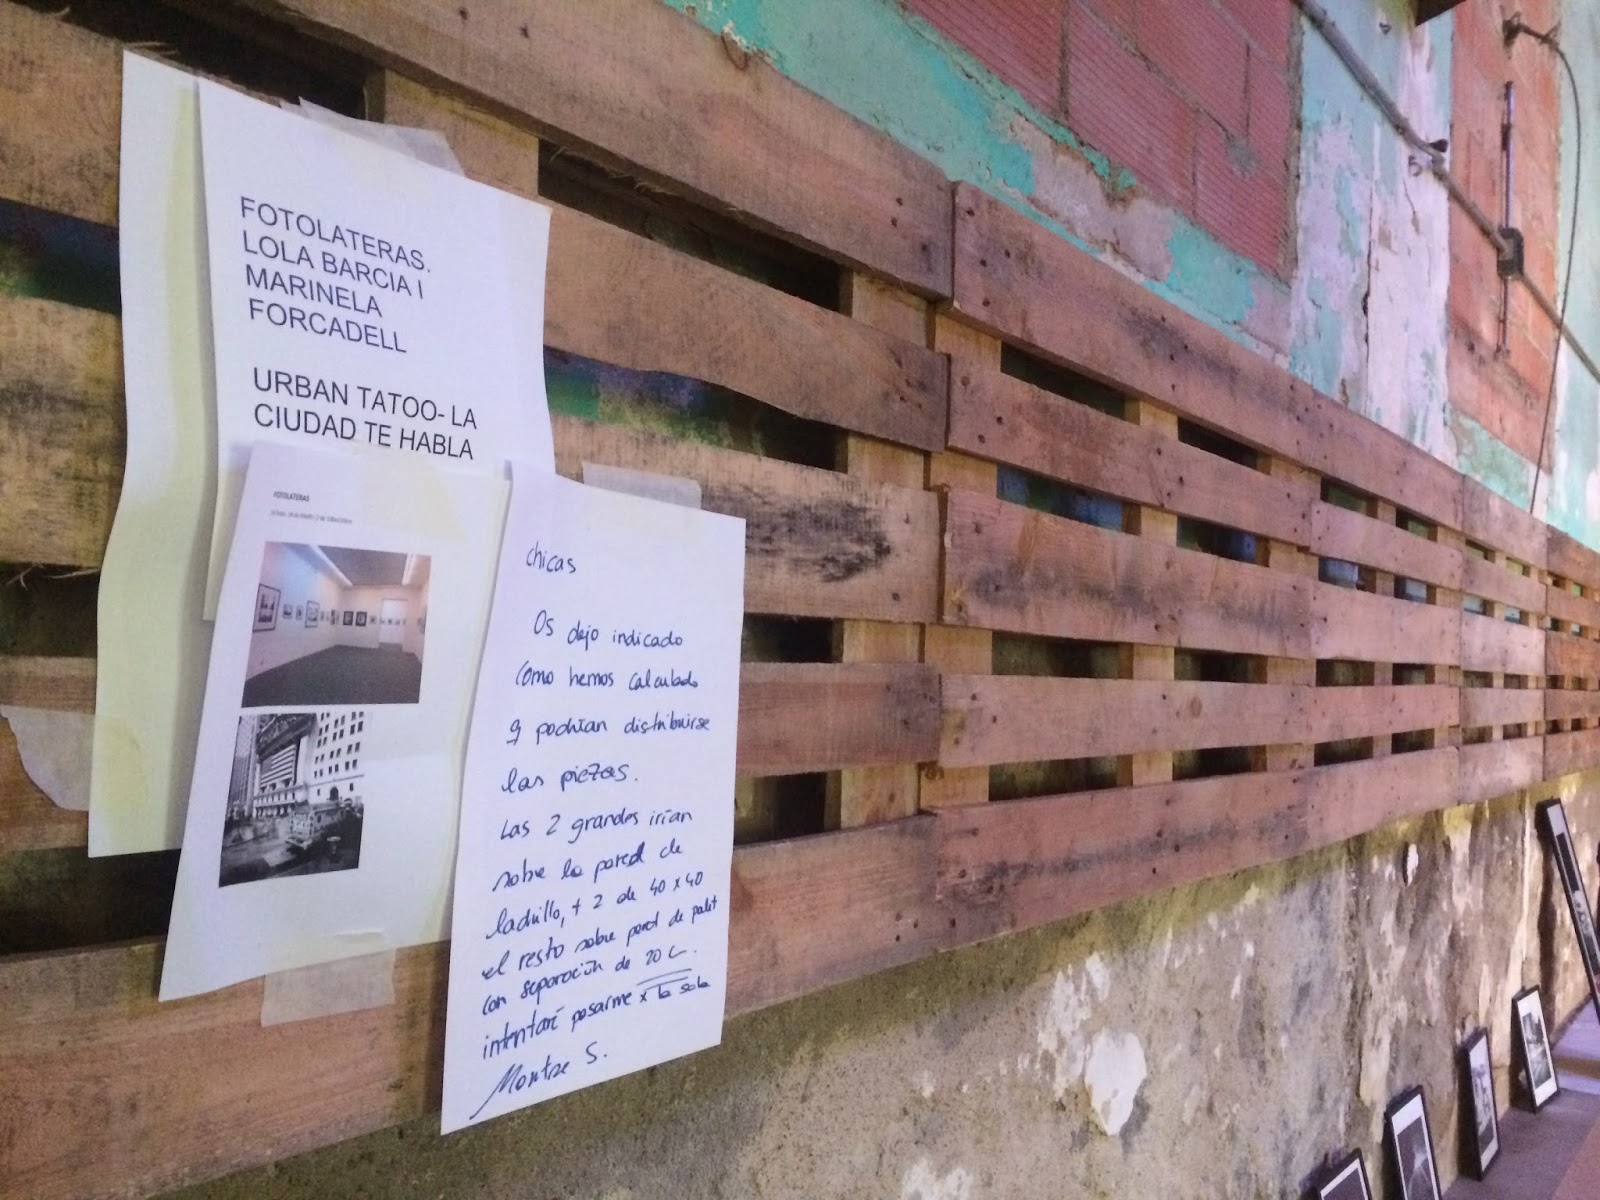 FOTOLATERAS.
LOLA BARCIA I
MARINELA
FORCADELL
URBAN TATOO- LA
CIUDAD TE HABLA
FOTOLATERAS
chicas
Os dejo indicado
como hemos calculado
q podrían distribuirse
las piezas.
Las 2 grandes irían
sobre la pared de
ladrillo, + 2 de 40 x 40
el resto sobre pared de palet
con separación de 20 c
intentaré pasarme x la sala
Montse S.